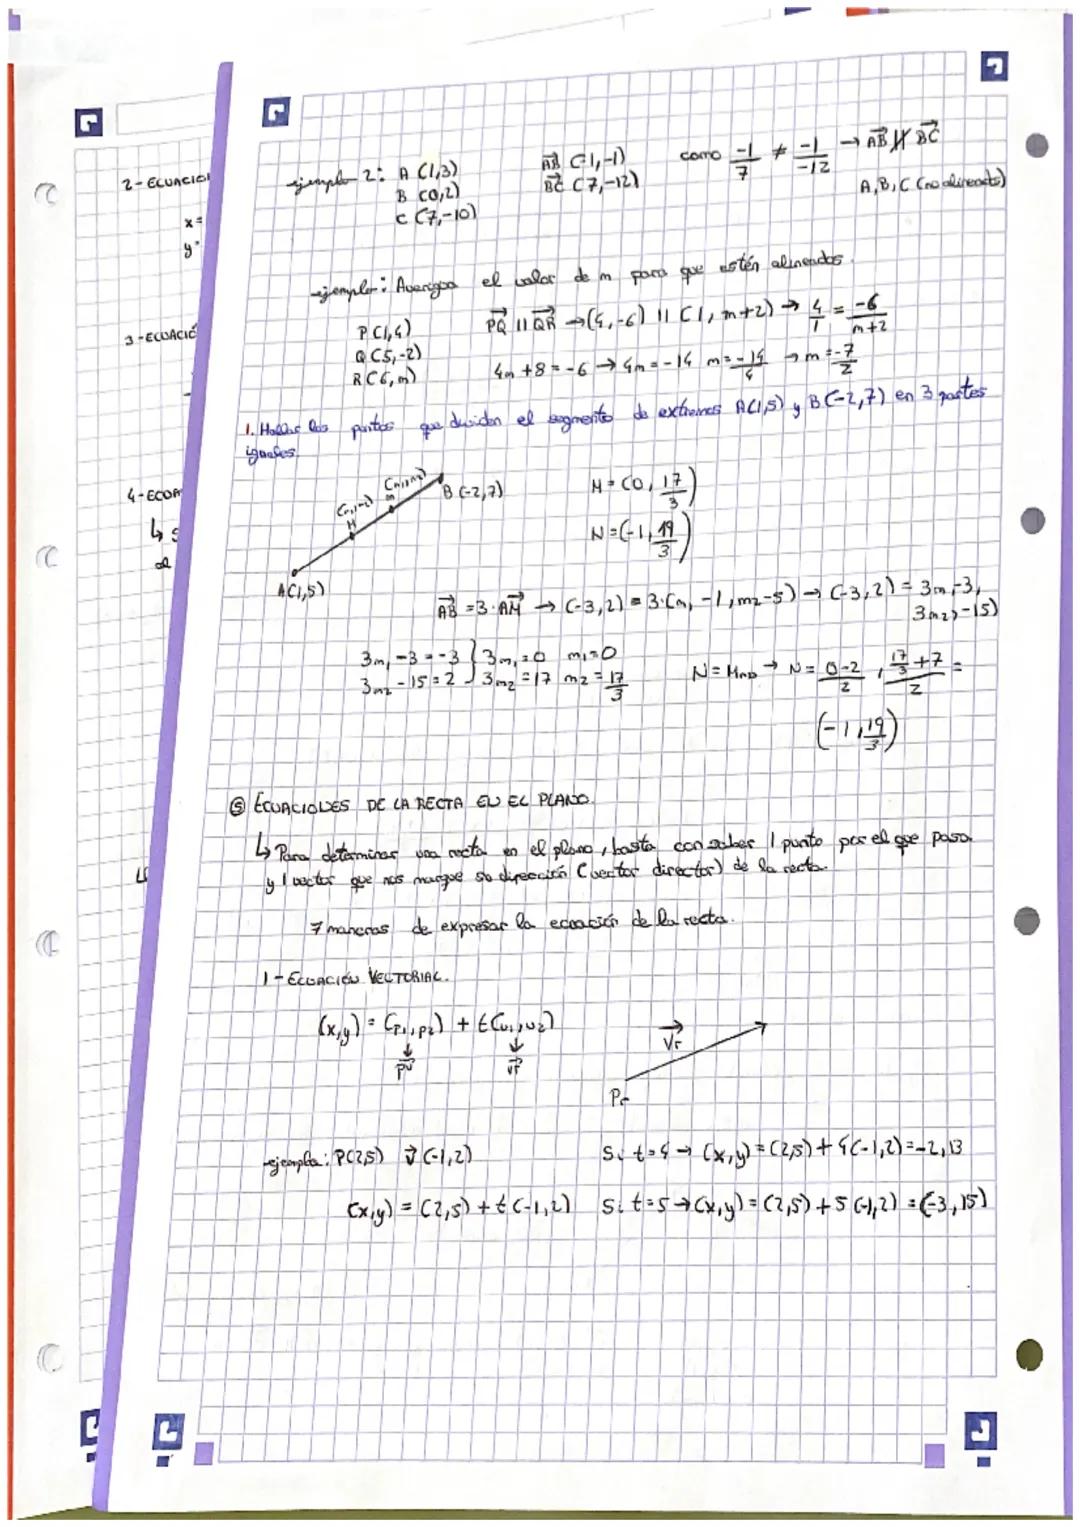 2-ECUACIO
x =
y
3-ECUACIÓ
4-ECUA
ejemplo 2: A (1,3)
B (0,2)
C (7,-10)
AB→ (-1,-1)
BC→ (7,-12)
como -1/7 ≠ -1/-12 → AB→ ∦ BC→
A, B, C (no alineados)
ejemplo: Averigua el valor de m para que estén alineados.
P(1,4)
Q(5,-2)
R(6,m)
PQ→ || QR→ → (4,-6) || (1, m+2) → 4/1 = -6/m+2
4m + 8 = -6 → 4m = -14 m = -14/4 → m = -7/2
1. Hallar los puntos que dividen el segmento de extremos A(1,5) y B(-2,7) en 3 partes
iguales.
(m1,m2)
M
B (-2,7)
A(1,5)
M = (0, 17/3)
N = (-1, 19/3)
AB→ = 3·AM→ → (-3,2) = 3·(m1 -1, m2-5) → (-3,2) = 3m1-3,
3m2-15)
3m1 -3 = -3 } 3m1 = 0 m1 = 0
3m2 - 15 = 2 } 3m2 = 17 m2 = 17/3
N = MMB → N = 0-2/2 , 17/3 + 7/2 =
(-1, 19/3)
⑤ ECUACIONES DE LA RECTA EN EL PLANO.
↳ Para determinar una recta en el plano, basta con saber 1 punto por el que pasa
y 1 vector que nos marque su dirección (vector director) de la recta.
7 maneras de expresar la ecuación de la recta.
1-ECUACIÓN VECTORIAL.
(x,y) = (p1,p2) + t(v1,v2)
↓ ↓
Vr→
Pr
ejemplo: P(2,5) v→ (-1,2)
(x,y) = (2,5) + t (-1,2)
Si t=4 → (x,y) = (2,5) + 4(-1,2) = -2,13
Si t=5 → (x,y) = (2,5) + 5 (-1,2) = (-3,15)